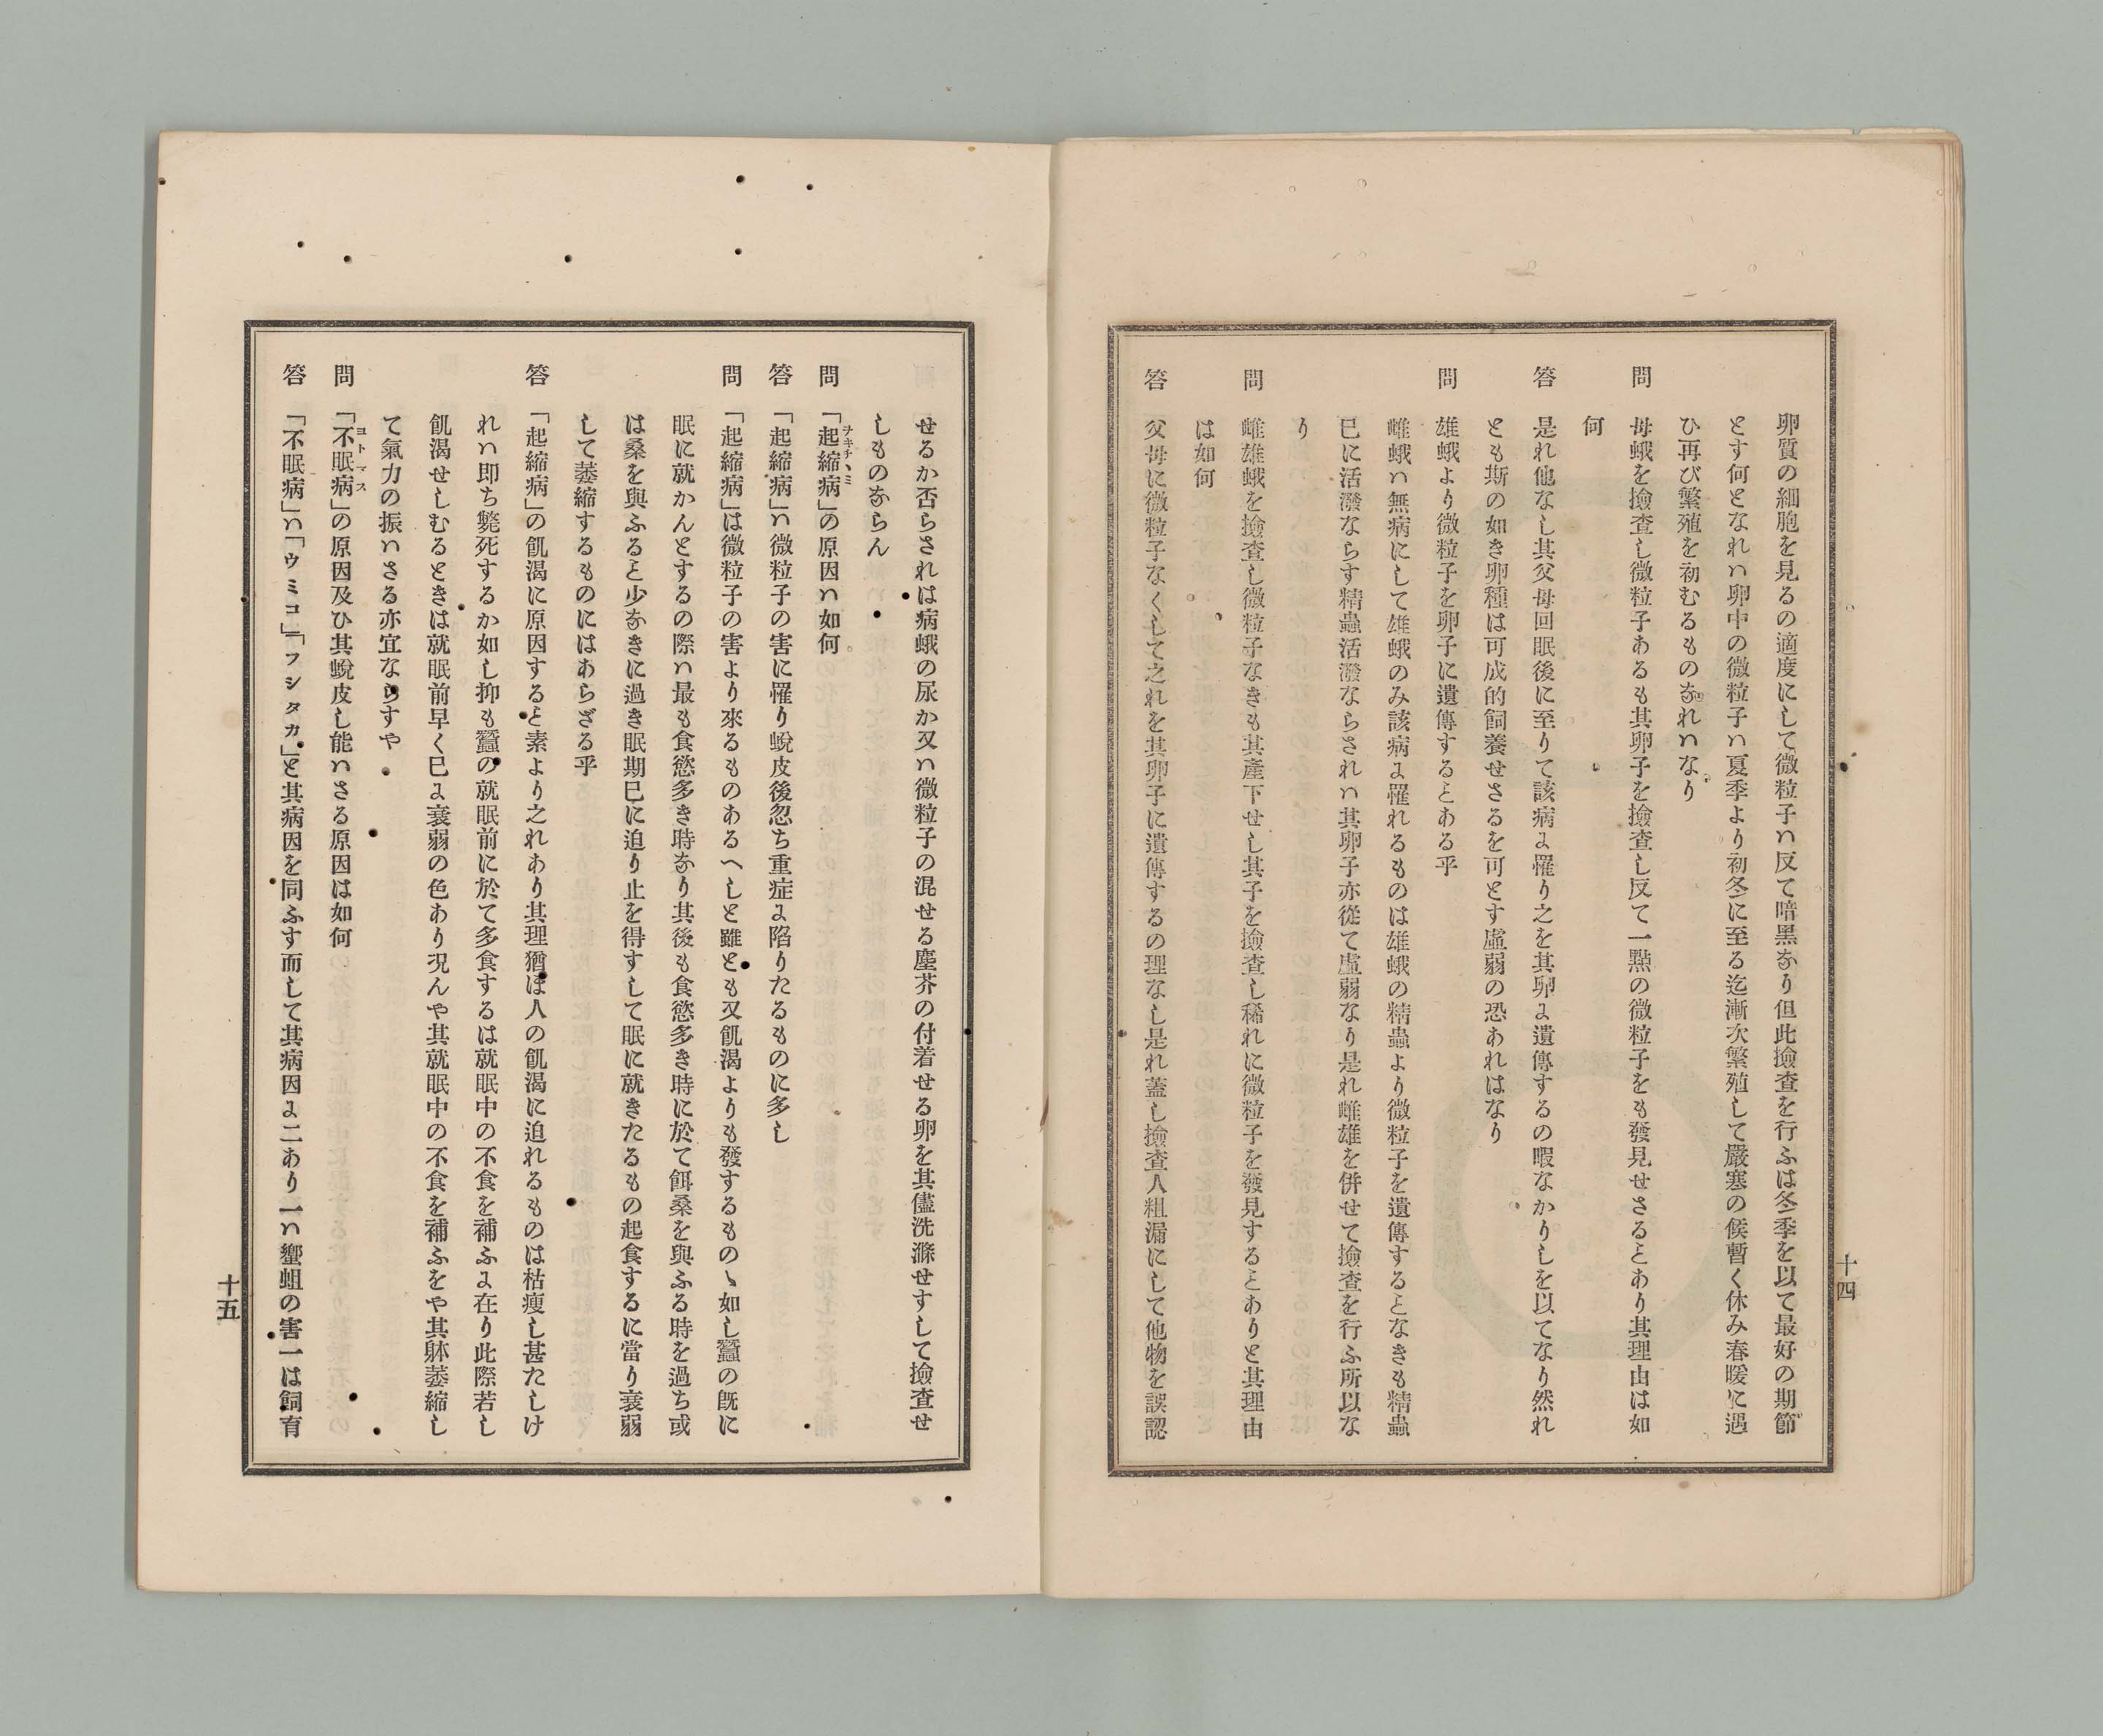 卵質の細胞を見るの適度にして微粒子ハ反て暗黒なり但此撿査を行ふは冬季を以て最好の期節
とす何となれハ卵中の微粒子ハ夏季より初冬に至る迄漸次繁殖して嚴寒の候暫く休み春暖に遇
ひ再び繁殖を初むるものなれハなり
問 母蛾を撿査し微粒子あるも其卵子を撿査し反て一點の微粒子をも發見せさるヿあり其理由は如
何
答 是れ他なし其父母回眠後に至りて該病に罹り之を其卵に遺傳するの暇なかりしを以てなり然れ
とも斯の如き卵種は可成的飼養せさるを可とす虛弱の恐あれはなり
問 雄蛾より微粒子を卵子に遺傳するヿある乎
雌蛾ハ無病にして雄蛾のみ該病に罹れるものは雄蛾の精蟲より微粒子を遺傳するヿなきも精蟲
巳に活潑ならす精蟲活潑ならされハ其卵子亦從て虛弱なり是れ雌雄を併せて撿查を行ふ所以な
り
問 雌雄蛾を撿査し微粒子なきも其產下せし其子を撿査し稀れに微粒子を發見するヿありと其理由
は如何
答 父母に微粒子なくして之れを其卵子に遺傳するの理なし是れ蓋し撿査人粗漏にして他物を誤認
十四
せるか否らされは病蛾の尿か又ハ微粒子の混せる塵芥の付着せる卵を其儘洗滌せすして撿査せ
しものならん
問 「起縮病」の原因ハ如何
答 「起縮病」ハ微粒子の害に罹り蛻皮後忽ち重症に陷りたるものに多し
問 「起縮病」は微粒子の害より來るものあるへしと雖とも又飢渴よりも發するものヽ如し蠶の既に
眠に就かんとするの際ハ最も食慾多き時なり其後も食慾多き時に於て餌桑を與ふる時を過ち或
は桑を與ふると少なきに過き眠期巳に迫り止を得すして眠に就きたるもの起食するに當り衰弱
して萎縮するものにはあらざる乎
答 「起縮病」の飢渴に原因するヿ素より之れあり其理猶ほ人の飢渴に迫れるものは枯瘦し甚たしけ
れハ即ち斃死するか如し抑も蠶の就眠前に於て多食するは就眠中の不食を補ふに在り此際若し
飢渴せしむるときは就眠前早く巳に衰弱の色あり況んや其就眠中の不食を補ふをや其躰萎縮し
て氣力の振ハさる亦宜ならすや
問 「不眠病」の原因及ひ其蛻皮し能ハさる原因は如何
答 「不眠病」ハ「ウミコ」「フシタカ」と其病因を同ふす而して其病因に二あり一ハ蠁蛆の害一は飼育
十五